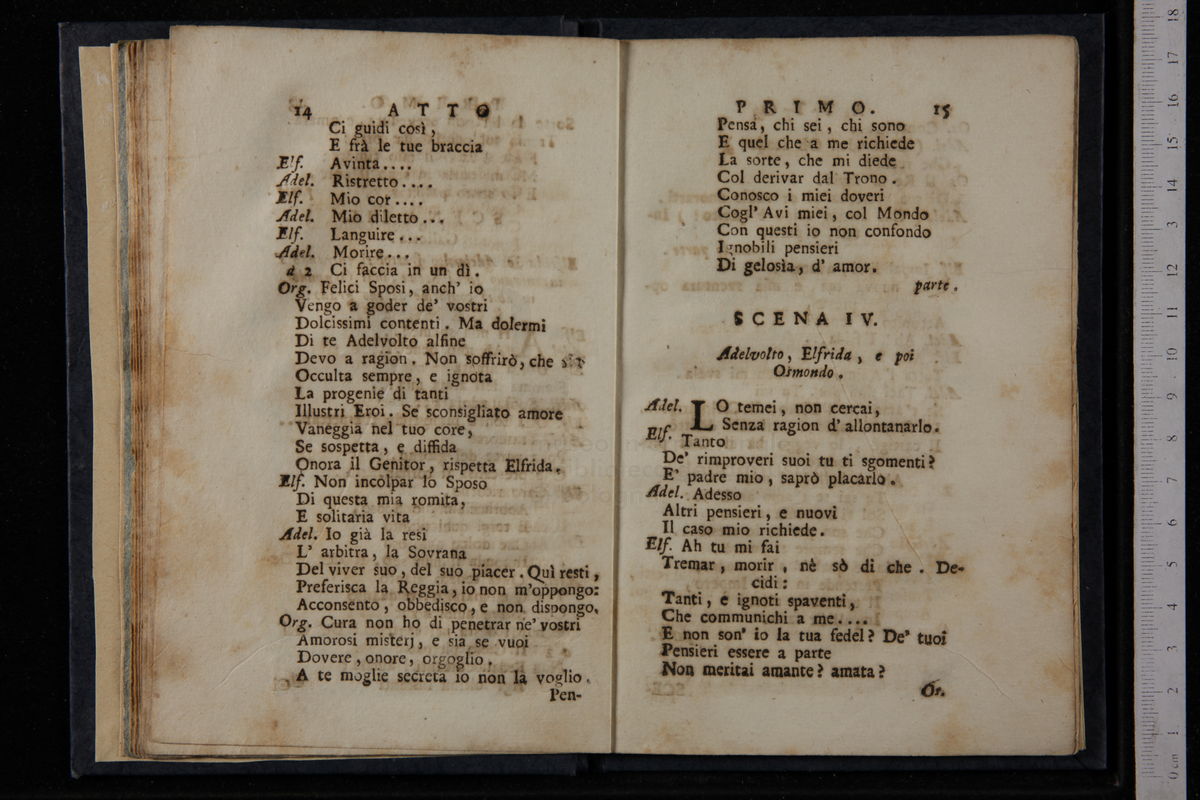 14 ATTO
Ci guidi così,
E frà le tue braccia
Elf. Avinta....
Adel. Ristretto....
Elf. Mio cor....
Adel. Mio diletto...
Elf. Languire...
Adel. Morire...
a 2 Ci faccia in un dì.
Org. Felici Sposi, anch' io
Vengo a goder de' vostri
Dolcissimi contenti. Ma dolermi
Di te Adelvolto alfine
Devo a ragion. Non soffrirò, che
Occulta sempre, e ignota
La progenie di tanti
Illustri Eroi. Se sconsigliato amore
Vaneggia nel tuo core,
Se sospetta, e diffida
Onora il Genitor, rispetta Elfrida.
Elf. Non incolpar lo Sposo
Di questa mia romita,
E solitaria vita
Adel. Io già la resi
L' arbitra, la Sovrana
Del viver suo, del suo piacer. Quì resti,
Preferisca la Reggia, io non m'oppongo:
Acconsento, obbedisco, e non dispongo.
Org. Cura non ho di penetrar ne' vostri
Amorosi misterj, e sia se vuoi
Dovere, onore, orgoglio.
A te moglie secreta io non la voglio.
Pen-
PRIMO. 15
Pensa, chi sei, chi sono
E quel che a me richiede
La sorte, che mi diede
Col derivar dal Trono.
Conosco i miei doveri
Cogl' Avi miei, col Mondo
Con questi io non confondo
Ignobili pensieri
Di gelosìa, d' amor.
parte.
SCENA IV.
Adelvolto, Elfrida, e poi
Osmondo.
Adel. LO temei, non cercai,
Senza ragion d' allontanarlo.
Elf. Tanto
De' rimproveri suoi tu ti sgomenti?
E' padre mio, saprò placarlo.
Adel. Adesso
Altri pensieri, e nuovi
Il caso mio richiede.
Elf. Ah tu mi fai
Tremar, morir, nè sò di che. De-
cidi:
Tanti, e ignoti spaventi,
Che communichi a me....
E non son' io la tua fedel? De' tuoi
Pensieri essere a parte
Non meritai amante? amata?
Os.
0 cm 1 2 3 4 5 6 7 8 9 10 11 12 13 14 15 16 17 18